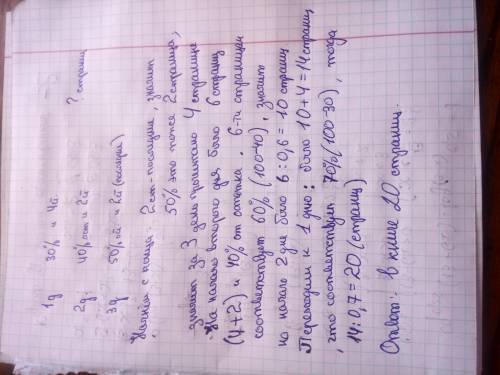 1д 30% и 4ст
2д. 40% ост и 2ст ? страниц
3д 50% ост и 2ст (последние)
Начнём с конца. 2 ст - последние, значит
50% это тоже 2 страницы,
значит за 3 день прочитано 4 страницы
На начало второго дня было 6 страниц
(4+2) и 40% от остатка. 6-ти страницам
соответствует 60% (100-40), значит
на начало 2 дня было 6:0,6=10 страниц
Переходим к 1 дню: было 10+4=14 страниц
, что соответствует 70% (100-30), тогда
14:0,7=20 (страниц)
Ответ: в книге 20 страниц.